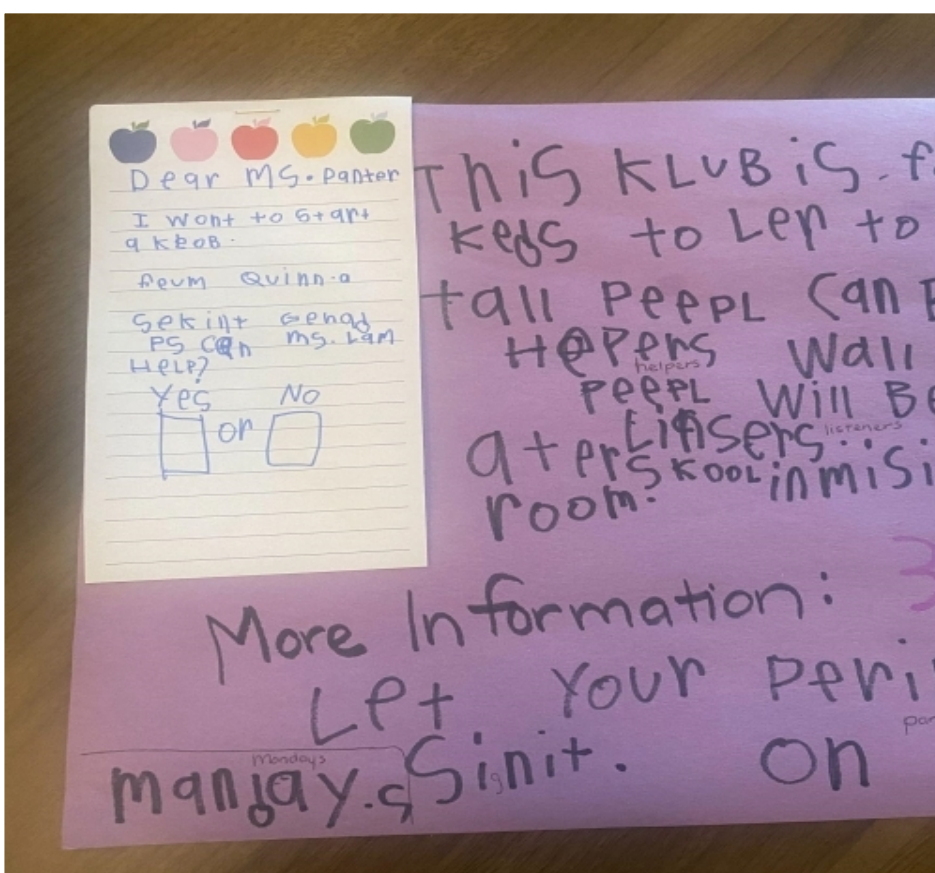 Dear Ms. Panter
I wont to start
a KLOB.
Quinn.a
Sekint
PS Can Ms. Lam
HeLP?
Yes No
or
This KLUB is. f
Keds to Len to
tall PeePL Can
HePers Wall
helpers
PeePL Will Be
Linsers.
listeners
aters KOOL in misi
room.
More Information: 3
Let Your Peri
par
Sinit. on
Mondays
manday.s